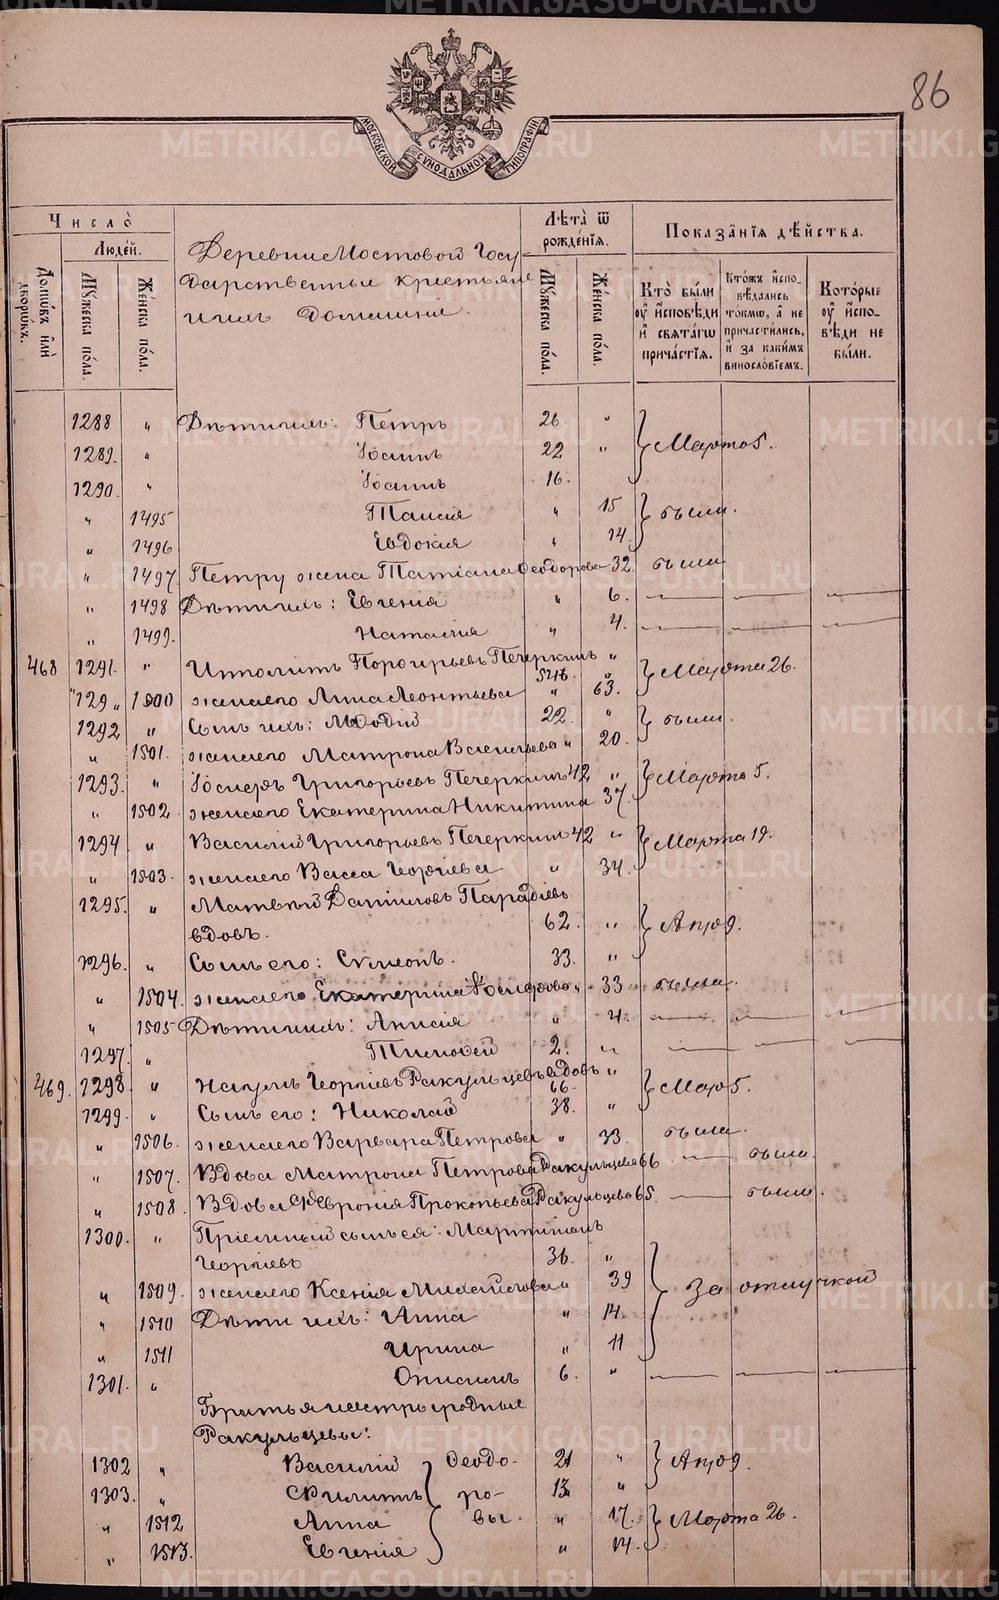 86
МОСКОВСКОЙ СѴНОДАЛЬНОЙ ТИПОГРАФІИ
Число̀
Людей.
Домѡвъ илѝ дворѡвъ.
Мꙋжеска по́ла.
Же́нска по́ла.
Деревни Мостовой Госу
дарственные крестьяне
и ихъ домашніе.
Лѣта̀ ѿ рожде́нїѧ.
Мꙋжеска по́ла.
Же́нска по́ла.
Показа̑нїѧ дѣ́йства.
Кто̀ бы́ли ᲂу҆ и҆́сповѣди и҆ свѧта́гѡ прича́стїѧ.
Кто́жъ и҆спо- вѣ́дались то́кмѡ, а҆ не причасти́лись, и҆ за каки́мъ винosло́вїемъ.
Кото́рые ᲂу҆ и҆́спо- вѣди не бы́ли.
1288 " Дѣти ихъ: Петръ 26. " Марта 5.
1289. " Іоаннъ 22 "
1290. " Іоаннъ 16.
" 1495 Таисія " 15 были.
" 1496 Евдокія " 14.
" 1497 Петру жена Татіана Ѳеодорова 32. была
" 1498 Дѣти ихъ: Евгенія " 6. — — —
" 1499. Наталія " 4. — — —
468 1291. " Ипполитъ Порфирьевъ Печеркинъ " Марта 26.
"129" 1500 жена его Анна Леонтьева " 63.
1292 " Сынъ ихъ: Меѳодій 22. " были.
" 1501. жена его Матрона Васильева " 20.
1293. " Іосифъ Григорьевъ Печеркинъ 42 " Марта 5.
" 1502. жена его Екатерина Никитина 37.
1294 " Василій Григорьевъ Печеркинъ 42 " Марта 19.
" 1503. жена его Васса Георгіева " 34.
1295. " Матвѣй Даніиловъ
вдовъ. 62. " Апр 9.
1296. " Сынъ его: Сѵмеонъ. 33. "
" 1504. жена его Екатерина Іосифова " 33 была.
" 1505 Дѣти ихъ: Анисія " 4. — — —
1297. " Тимоѳей 2. " — — —
469. 1298. " Наумъ Георгіевъ Ракульцевъ вдовъ 66. " Мар 5.
1299. " Сынъ его: Николай 38. "
" 1506. жена его Варвара Петрова " 33. была.
" 1507. Вдова Матрона Петрова Ракульцева 66. — была.
" 1508. Вдова Февронія Прокопьева Ракульцева 65. — была.
1300. " Пріемный сынъ ея: Мартиніанъ
Георгіевъ 36. "
" 1509. жена его Ксенія Михайлова " 39 За отлучкой
" 1510 Дѣти ихъ: Анна " 14.
" 1511 Ирина " 11
1301. " Онисимъ 6. " — — —
Братья и сестры родные
Ракульцевы:
1302 " Василій Ѳеодо- 21 " Апр 9.
1303. " Филиппъ ро- 13. "
" 1512 Анна вы. " 17. Марта 26.
" 1513. Евгенія " 14.